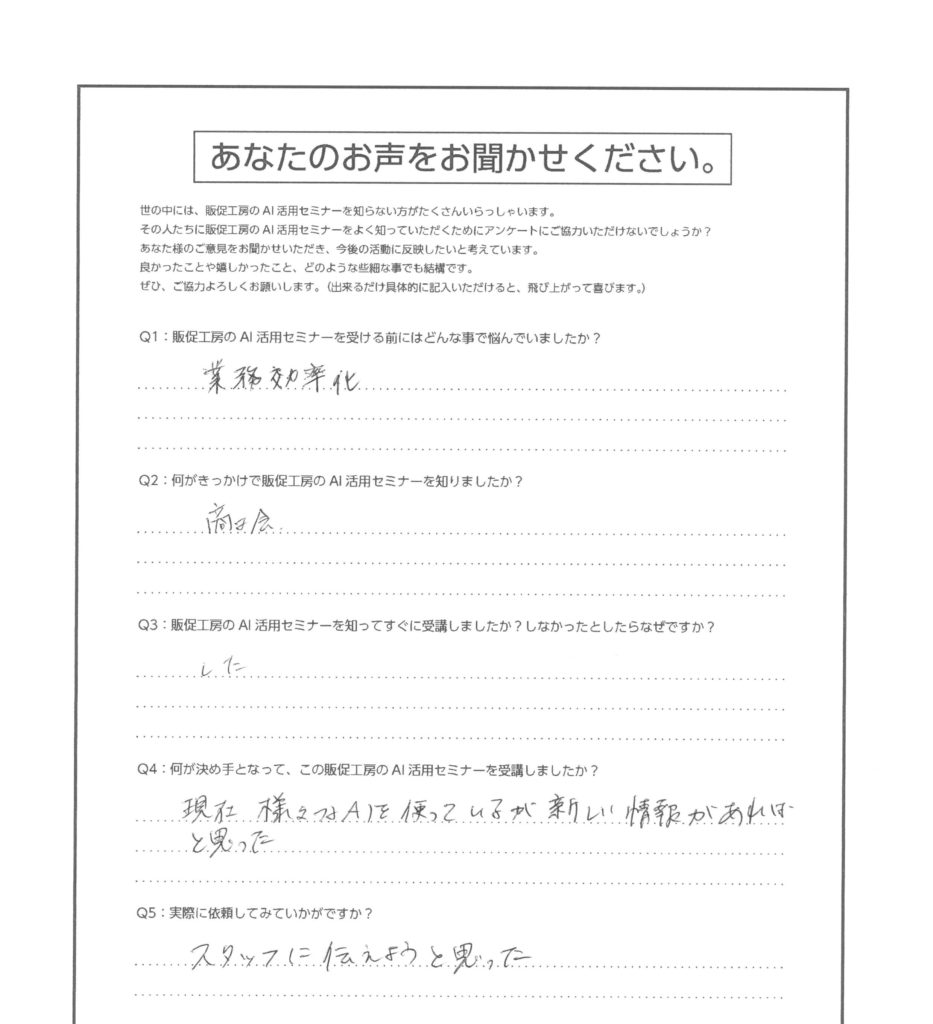 あなたのお声をお聞かせください。
世の中には、販促工房の AI 活用セミナーを知らない方がたくさんいらっしゃいます。
その人たちに販促工房の AI 活用セミナーをよく知っていただくためにアンケートにご協力いただけないでしょうか？
あなた様のご意見をお聞かせいただき、今後の活動に反映したいと考えています。
良かったことや嬉しかったこと、どのような些細な事でも結構です。
ぜひ、ご協力よろしくお願いします。（出来るだけ具体的に記入いただけると、飛び上がって喜びます。）
Q1：販促工房の AI 活用セミナーを受ける前にはどんな事で悩んでいましたか？
業務効率化
Q2：何がきっかけで販促工房の AI 活用セミナーを知りましたか？
商工会.
Q3：販促工房の AI 活用セミナーを知ってすぐに受講しましたか？しなかったとしたらなぜですか？
した
Q4：何が決め手となって、この販促工房の AI 活用セミナーを受講しましたか？
現在 様々なAIを使っているが新しい情報があれば
と思った
Q5：実際に依頼してみていかがですか？
スタッフに伝えようと思った